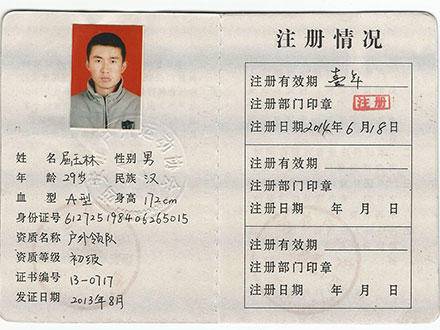 姓 名 屈玉林 性别 男
年 龄 29岁 民族 汉
血 型 A型 身高 172cm
身份证号 612725198406265015
资质名称 户外领队
资质等级 初级
证书编号 13-0717
发证日期 2013年8月
注册情况
注册有效期 壹年
注册部门印章 注册
注册日期 2014年6月18日
注册有效期
注册部门印章
注册日期 年 月 日
注册有效期
注册部门印章
注册日期 年 月 日